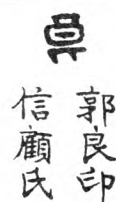 郭良印
信顧氏